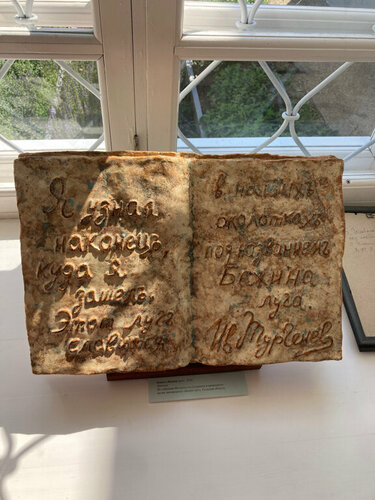 Я узнал
наконецъ,
куда я
зашелъ.
Этот лугъ
славился
в нашихъ
околоткахъ
под названiемъ
Бѣжина
луга
Ив Тургенев